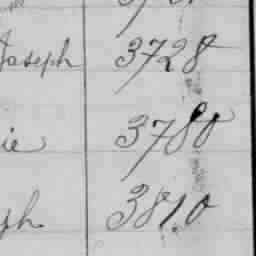 Joseph 3728
ie 3780
ph 3810